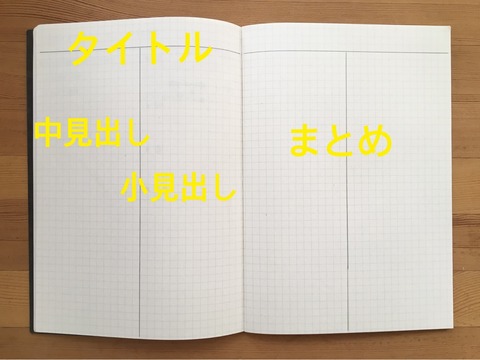 タイトル
中見出し
小見出し
まとめ